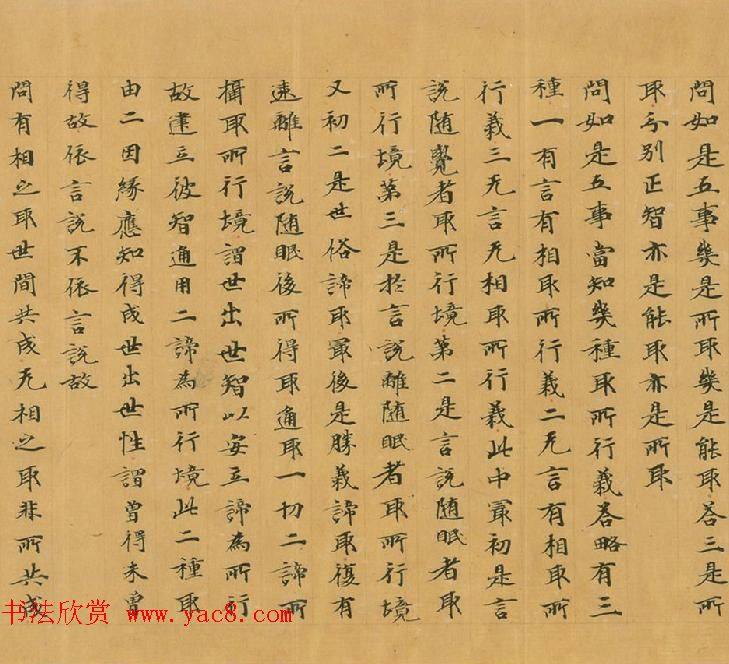 問如是五事幾是所取幾是能取荅三是所
取分別正智亦是能取亦是所取
問如是五事當知幾種取所行義荅略有三
種一有言有相取所行義二无言有相取所
行義三无言无相取所行義此中冣初是言
說随覺者取所行境第二是言說随眠者取
所行境第三是於言說離随眠者取所行境
又初二是世俗諦取冣後是勝義諦取復有
遠離言說随眠後所得取通取一切二諦所
攝取所行境謂世出世智以安立諦為所行
故建立彼智通用二諦為所行境此二種取
由二因緣應知得成世出世性謂曾得未曾
得故依言說不依言說故
問有相之取世間共成无相之取非所共成
书法欣赏 www.yac8.com